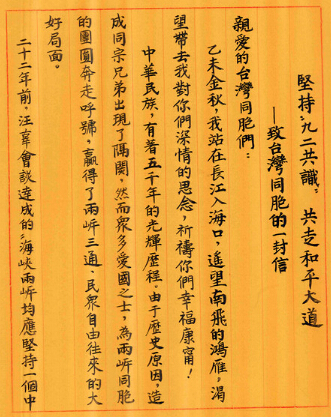 堅持“九二共識” 共走和平大道
——致台灣同胞的一封信
親愛的台灣同胞們：
乙未金秋，我站在長江入海口，遙望南飛的鴻雁，渴
望帶去我對你們深情的思念，祈禱你們幸福康甯！
中華民族，有着五千年的光輝歷程。由于歷史原因，造
成同宗兄弟出現了隔閡。然而衆多愛國之士，為兩岍同胞
的團圓奔走呼號，贏得了兩岍三通、民衆自由往來的大
好局面。
二十二年前，汪辜會談達成的“海峽兩岍均應堅持一個中